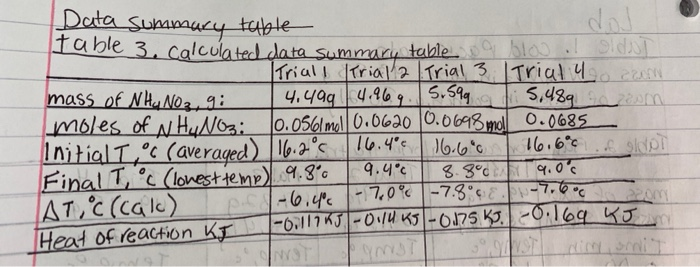 Data summary table
Table 3. Calculated data summary table
Trial 1 Trial 2 Trial 3 Trial 4
mass of NH4NO3, g: 4.49g 4.96g 5.59g 5.48g
moles of NH4NO3: 0.0561mol 0.0620 0.0698 mol 0.0685
Initial T, °C (averaged) 16.2°C 16.4°C 16.6°C 16.6°C
Final T, °C (lowest temp) 9.8°C 9.4°C 8.8°C 9.0°C
ΔT, °C (calc) -6.4°C -7.0°C -7.8°C -7.6°C
Heat of reaction KJ -0.117KJ -0.14 KJ -0.175 KJ. -0.169 KJ